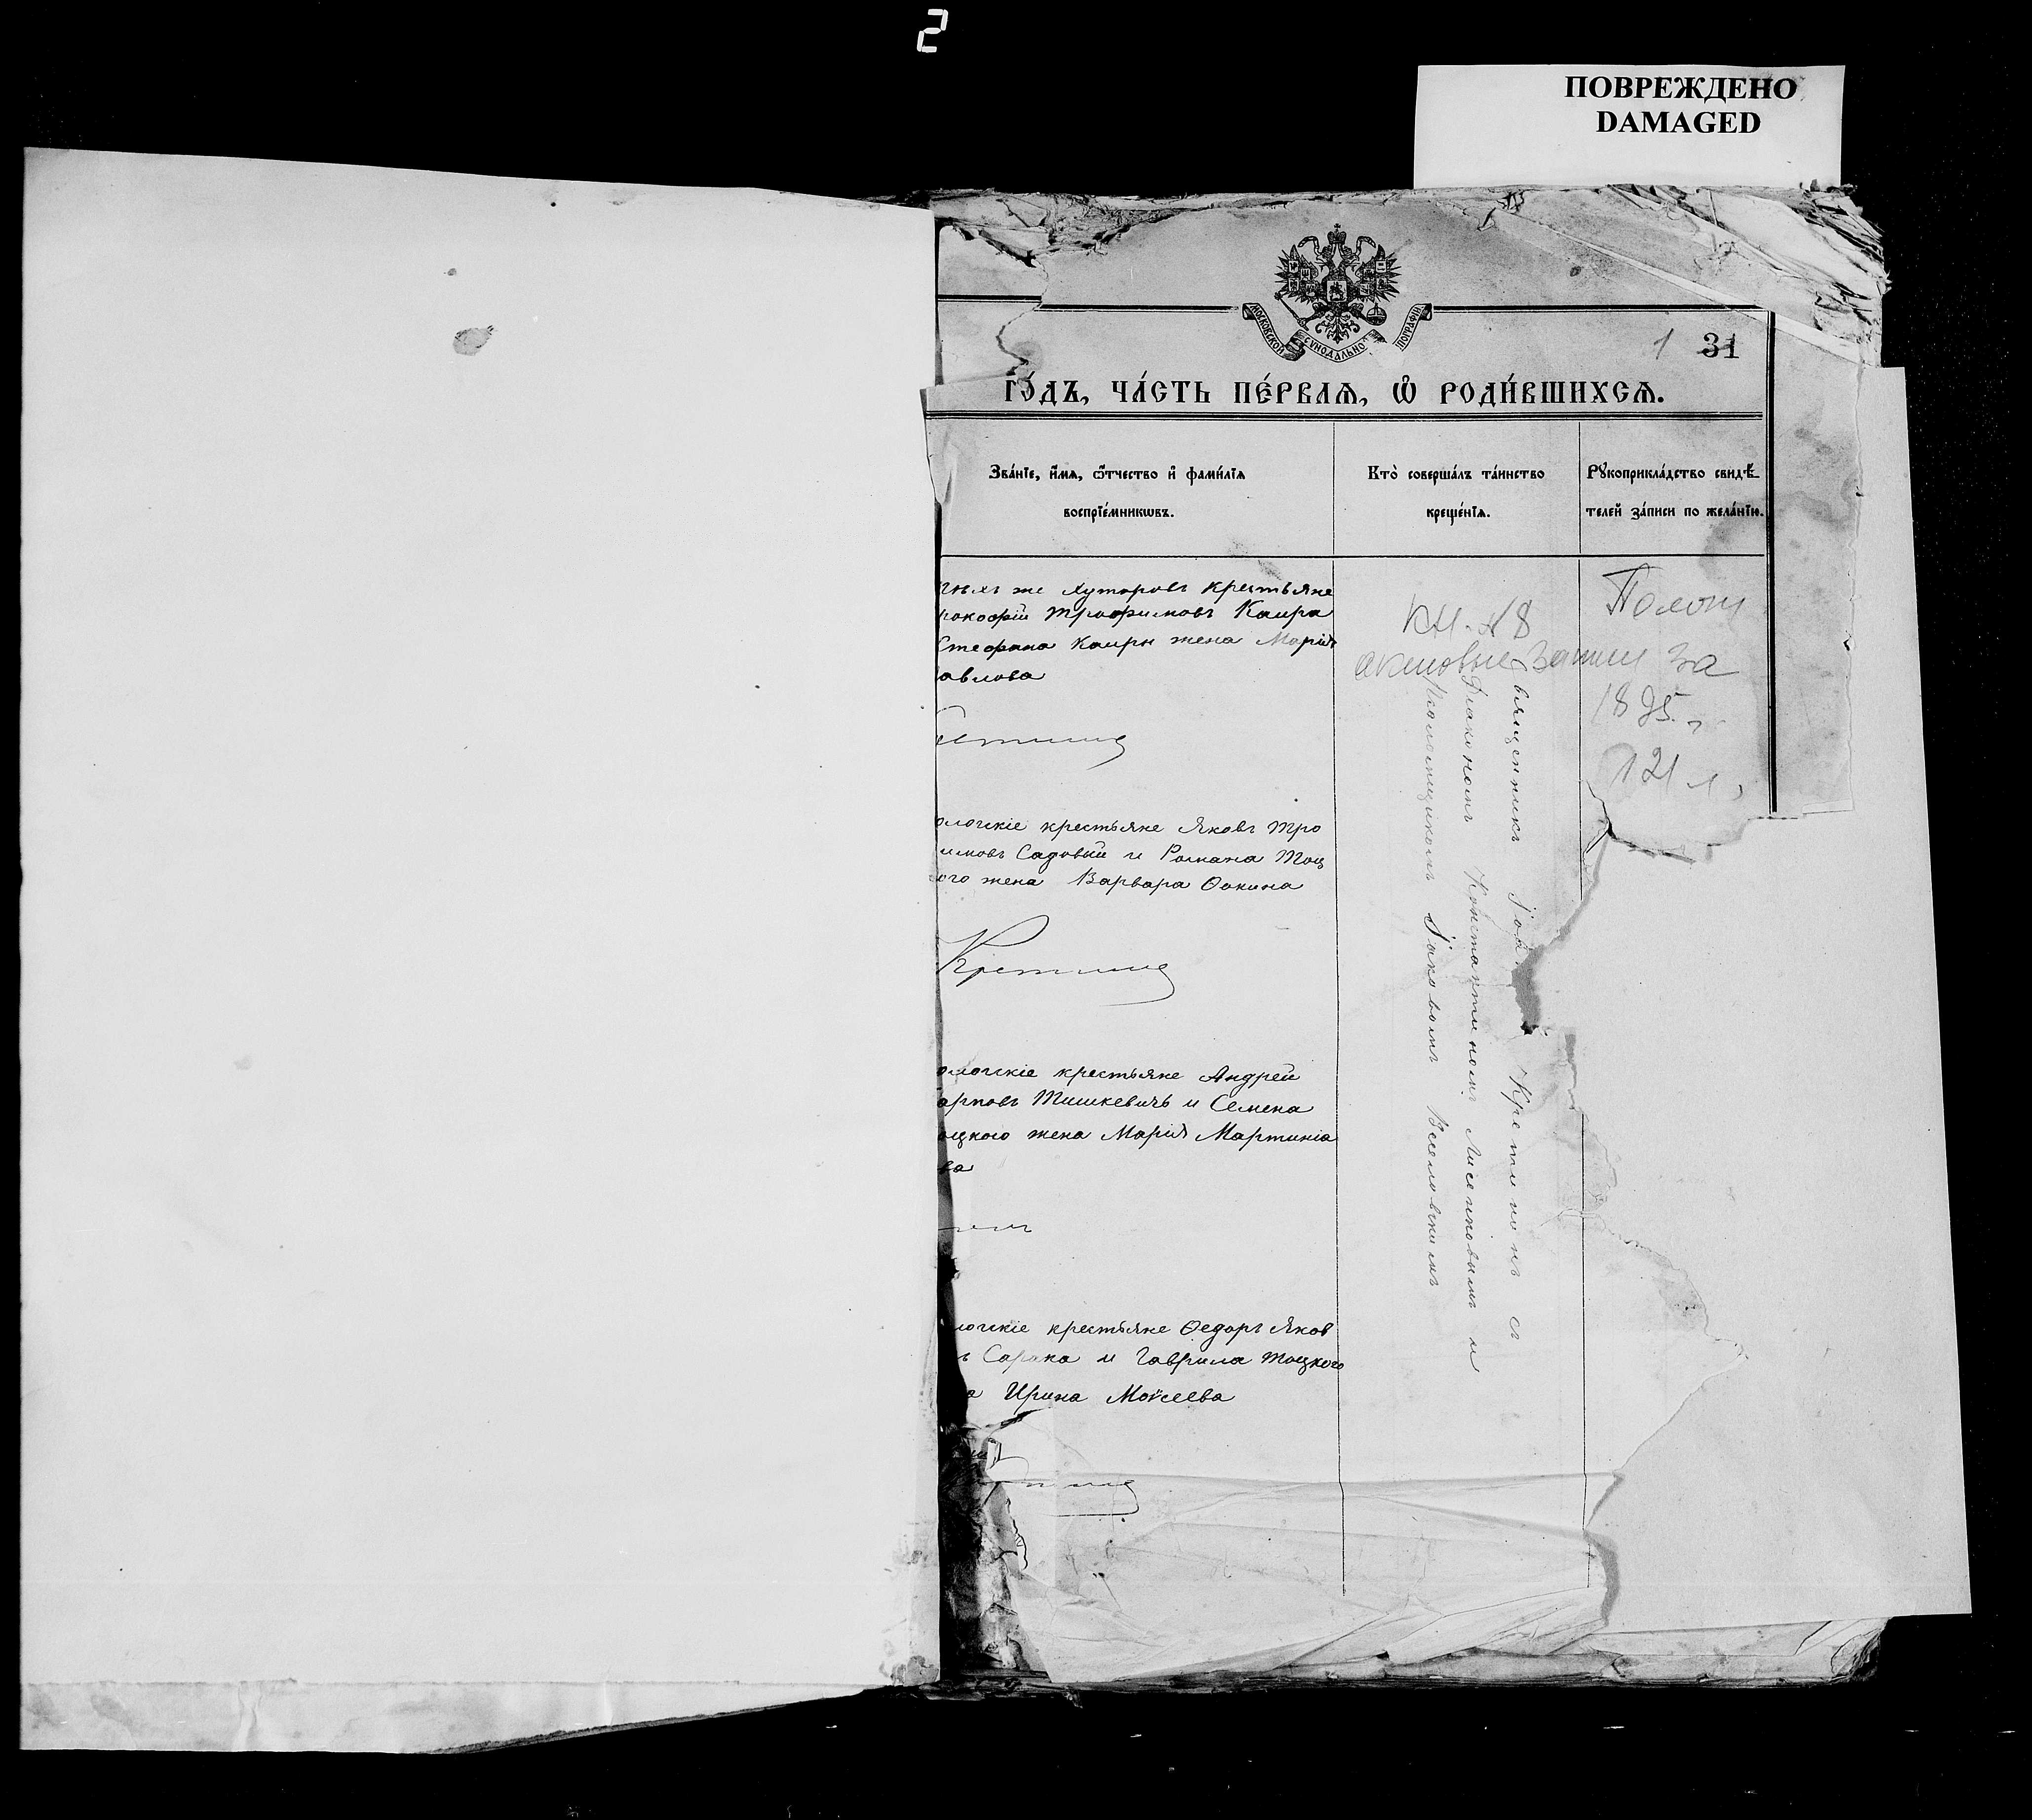 2
ПОВРЕЖДЕНО
DAMAGED
МОСКОВСКОЙ СѴНОДАЛЬНО ПОГРАФІИ
1 31
го́дъ, ча́сть пе́рваѧ, ѡ҆ роди́вшихсѧ.
Зва́нїе, и҆́мѧ, ѻ҆́тчество и҆ фами́лїѧ
воспрїе́мникѡвъ.
Кто̀ соверша́лъ та́инство
креще́нїѧ.
Рꙋкоприкла́дство свидѣ́-
телей за́писи по жела́нїю.
же хуторовъ крестьяне
рокофій Трофимовъ Каира
Стефана Каиры жена Марія
авлова
ологскіе крестьяне Яковъ Тро
имовъ Садовый и Романа Тоц
ого жена Варвара Фокина
ологскіе крестьяне Андрей
арповъ Тишкевичъ и Семена
оцкого жена Марія Мартиніа
ва
логскіе крестьяне Ѳедоръ Яков
ъ Сорока и Гаврила Тоцкого
а Ирина Моѵсеева
священникъ Іоа Крепинонъ съ
Діакономъ Константиномъ Лисенковымъ и
Псаломщикомъ Іаковомъ Веселовскимъ
кн. 18
актовые записи за
1895 г.
121 л.